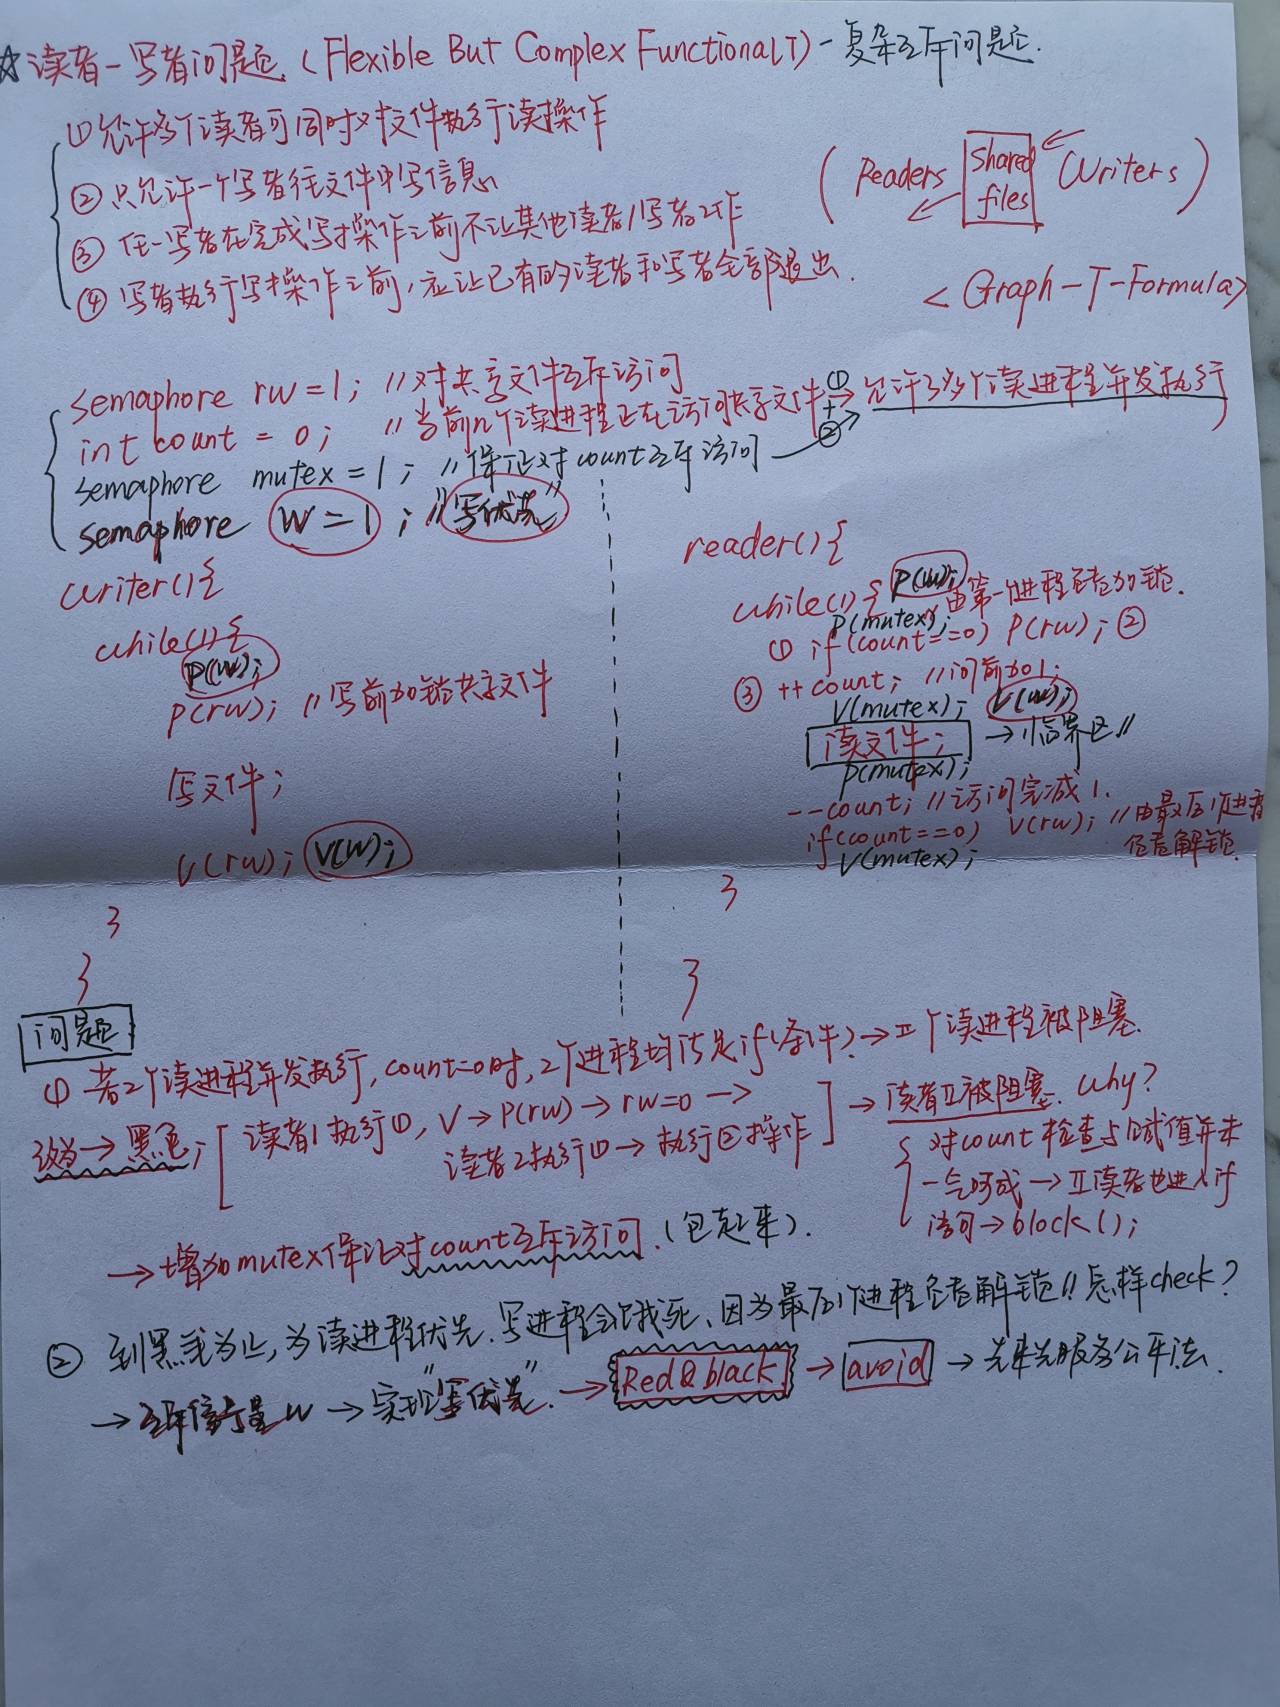 ☆读者-写者问题 (Flexible But Complex Functional(T)) - 复杂互斥问题.
① 允许多个读者可同时对文件执行读操作
② 只允许一个写者往文件中写信息
③ 任一写者在完成写操作之前不让其他读者/写者工作
④ 写者执行写操作之前,应让已有的读者和写者全部退出.
(Readers Shared files Writers)
<Graph-T-Formula>
semaphore rw=1; //对共享文件互斥访问
int count = 0; //当前n个读进程正在访问共享文件 ①+② 允许多个读进程并发执行
semaphore mutex=1; //保证对count互斥访问
semaphore W=1; //"写优先"
writer(){
while(1){
P(w);
P(rw); //写前加锁共享文件
写文件;
V(rw); V(w);
}
}
reader(){
while(1){ P(w); 由第一个进程负责加锁.
P(mutex);
① if(count==0) P(rw); ②
③ ++count; //访问前加1;
V(mutex); V(w);
读文件; → 临界区//
P(mutex);
--count; //访问完减1.
if(count==0) V(rw); //由最后1个进程
负责解锁.
V(mutex);
}
}
问题
① 若2个读进程并发执行,count=0时,2个进程均满足if(条件).→II个读进程被阻塞.
→黑色; 读者1执行①,V→P(rw)→rw=0→ → 读者II被阻塞. Why?
读者2执行①→执行②操作 对count检查与赋值并未
一气呵成→II读者也进入if
语句→block();
→增加mutex保证对count互斥访问.(包起来).
② 到黑线为止,为读进程优先.写进程会饿死,因为最后1个进程负责解锁// 怎样check?
→互斥信号量w→实现"写优先".→Red&black→avoid→先来先服务公平法.